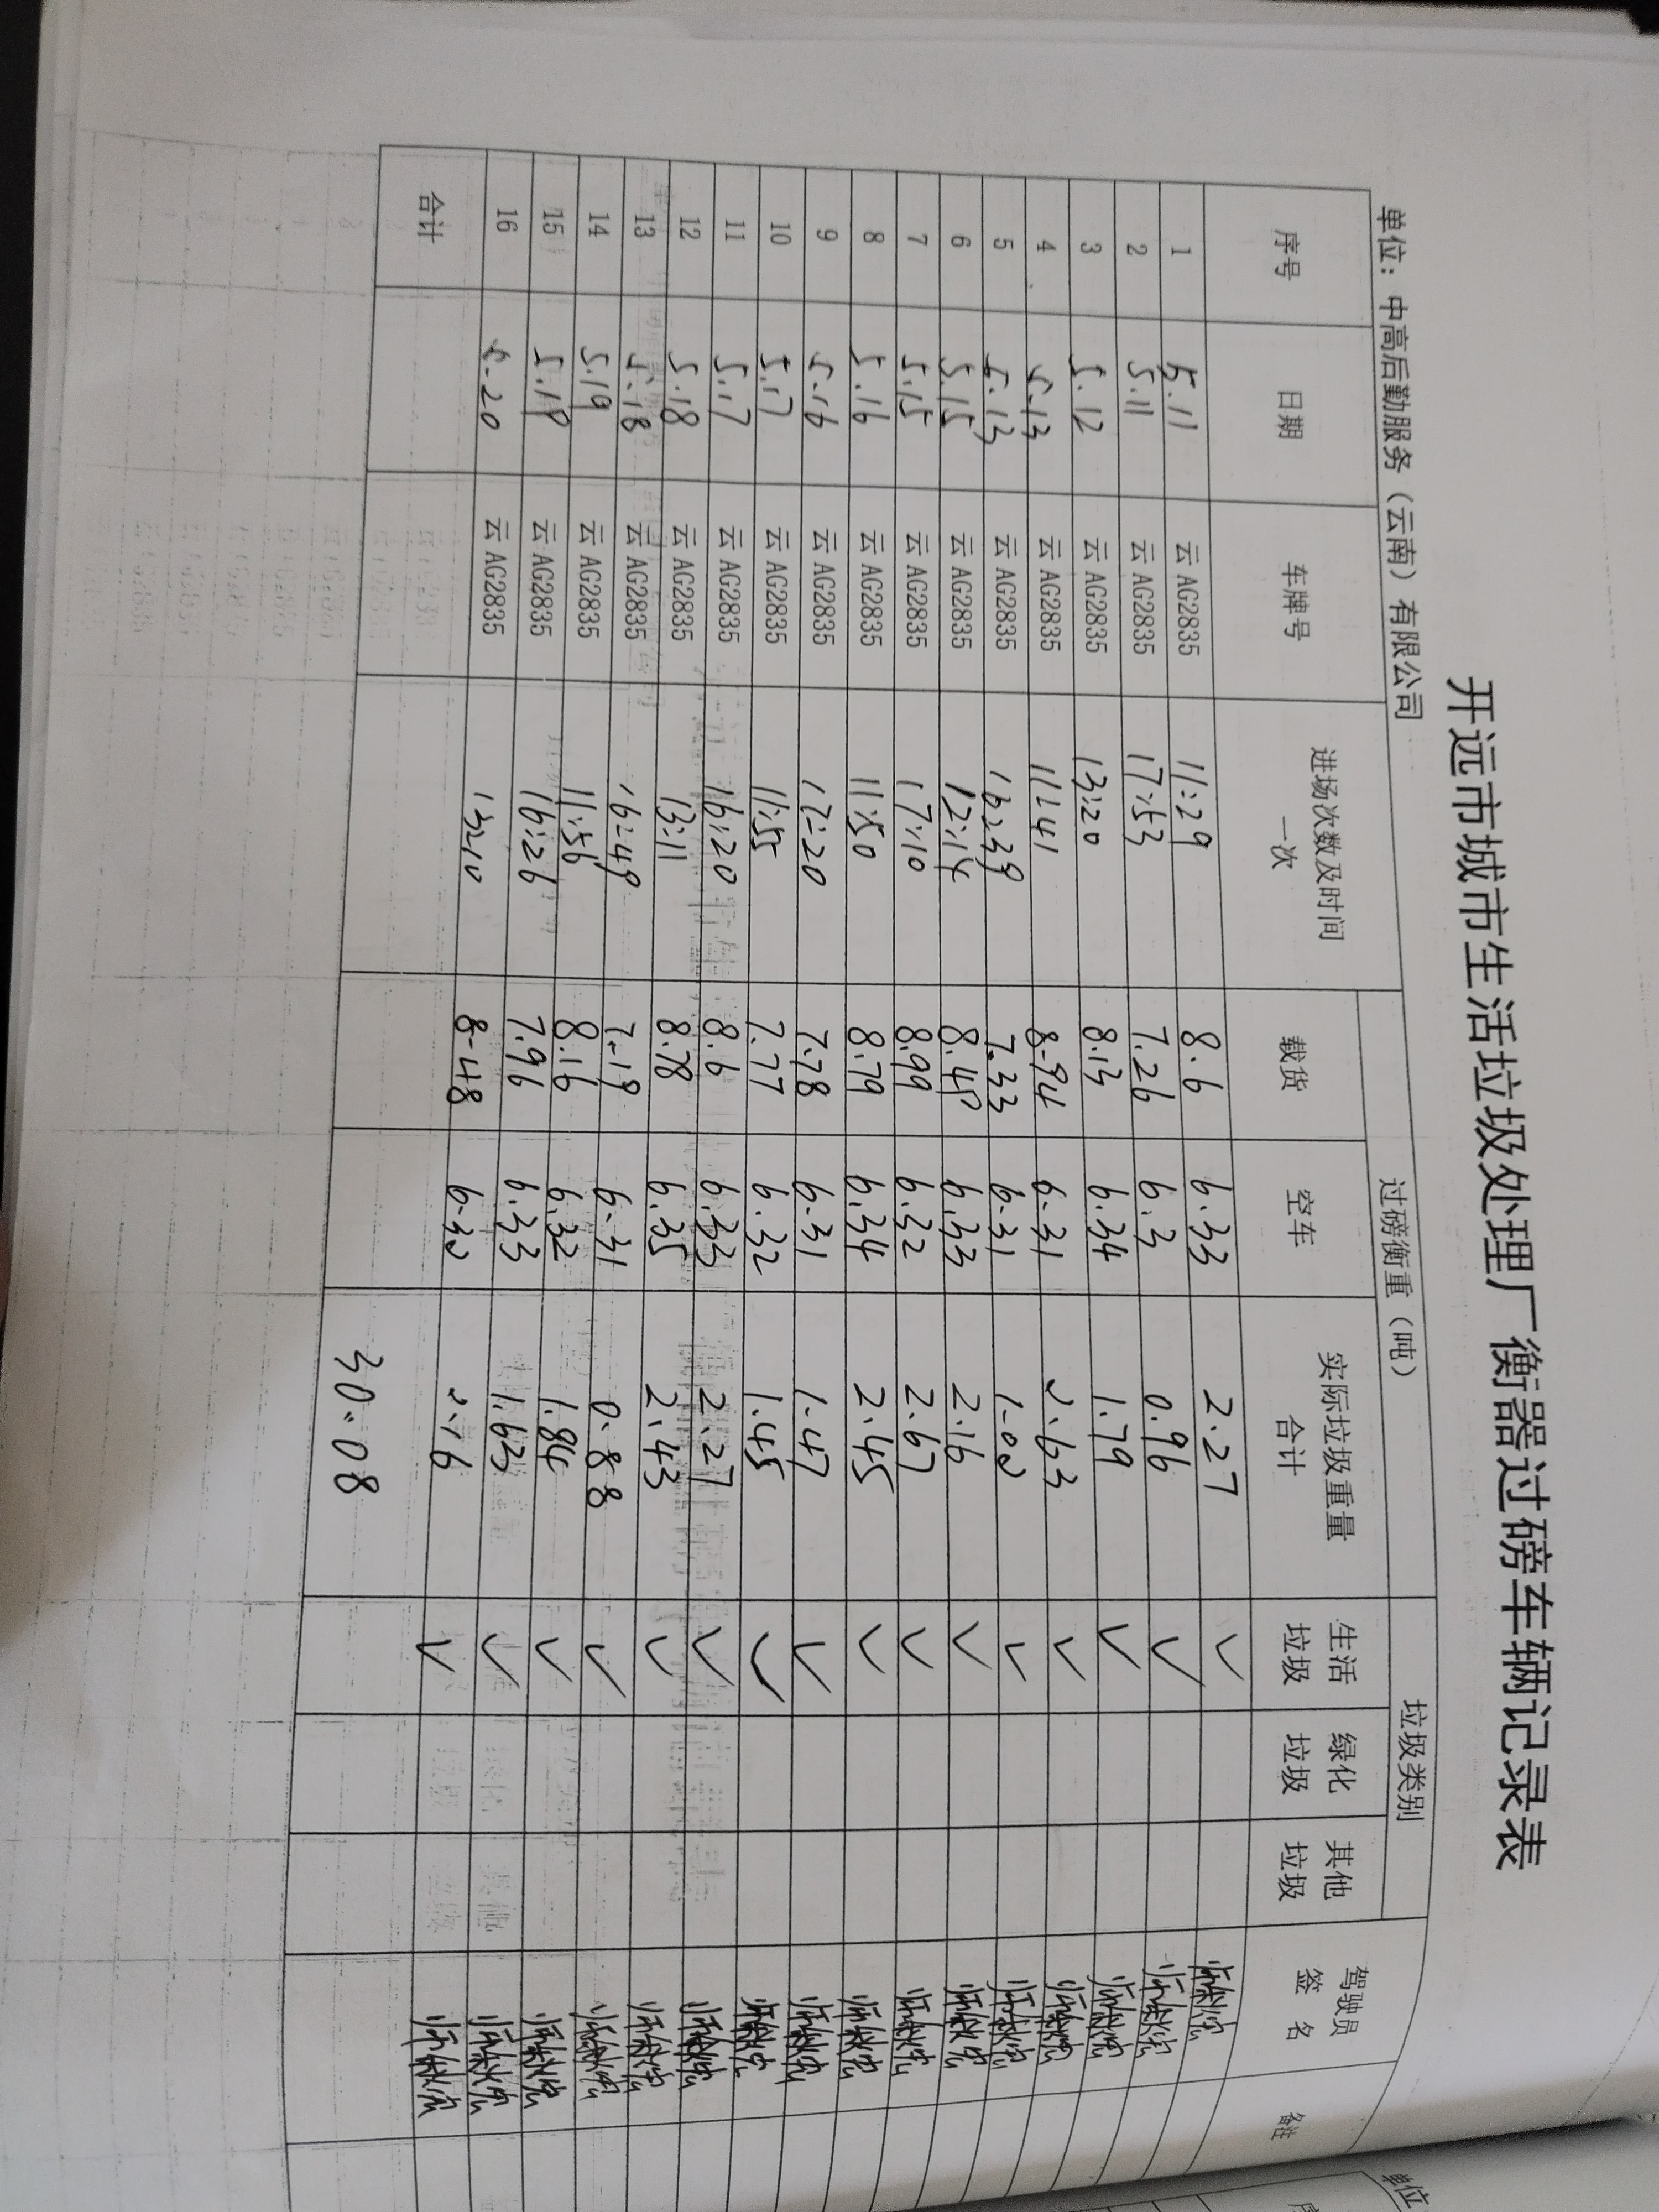 开远市城市生活垃圾处理厂衡器过磅车辆记录表
单位：中高后勤服务（云南）有限公司
序号 日期 车牌号 进场次数及时间 一次 过磅衡重（吨） 载货 空车 实际垃圾重量合计 垃圾类别 生活垃圾 绿化垃圾 其他垃圾 驾驶员签名 备注
1 5.11 云AG2835 11:29 8.6 6.33 2.27 ✓
2 5.11 云AG2835 17:53 7.26 6.3 0.96 ✓
3 5.12 云AG2835 13:20 8.13 6.34 1.79 ✓
4 5.13 云AG2835 11:41 8.94 6.31 2.63 ✓
5 5.13 云AG2835 16:39 7.33 6.31 1.02 ✓
6 5.15 云AG2835 12:14 8.49 6.33 2.16 ✓
7 5.15 云AG2835 17:10 8.99 6.32 2.67 ✓
8 5.16 云AG2835 11:50 8.79 6.34 2.45 ✓
9 5.16 云AG2835 17:20 7.78 6.31 1.47 ✓
10 5.17 云AG2835 11:55 7.77 6.32 1.45 ✓
11 5.17 云AG2835 16:20 8.6 6.33 2.27 ✓
12 5.18 云AG2835 13:11 8.78 6.35 2.43 ✓
13 5.18 云AG2835 16:49 7.19 6.31 0.88 ✓
14 5.19 云AG2835 11:56 8.16 6.32 1.84 ✓
15 5.19 云AG2835 16:26 7.96 6.33 1.63 ✓
16 5.20 云AG2835 13:10 8.48 6.32 2.16 ✓
合计 30.08
单位